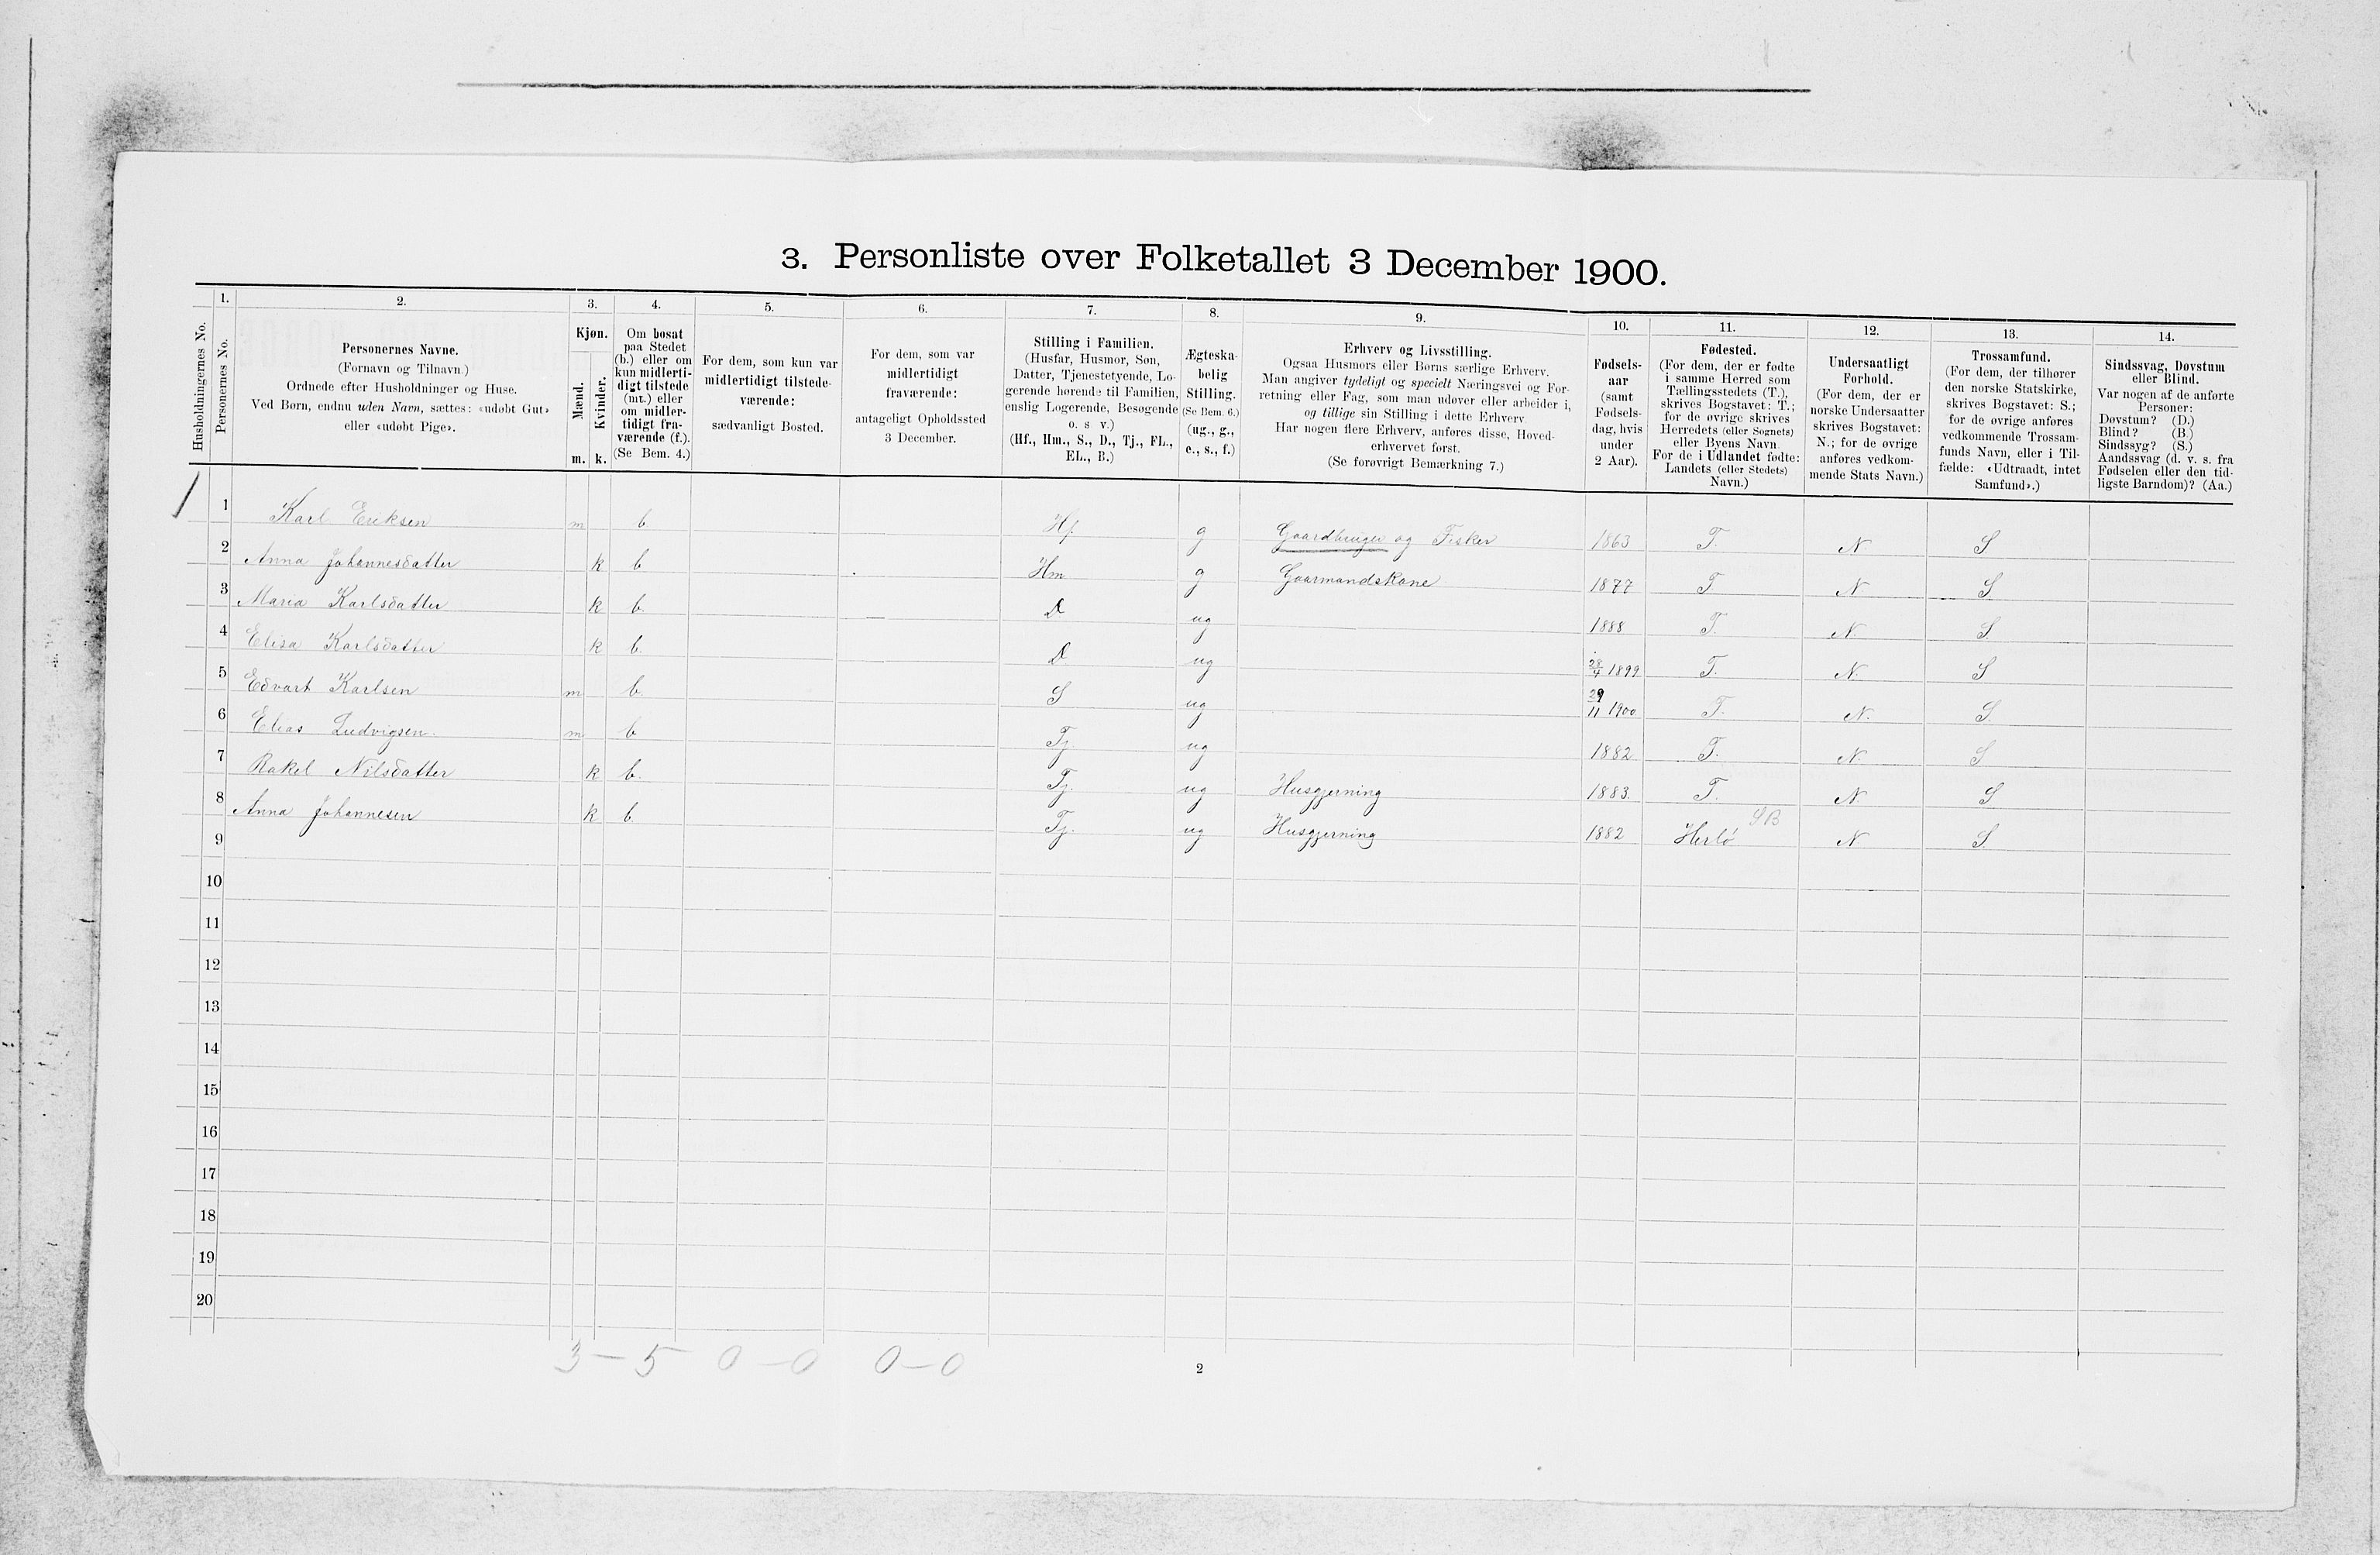 3. Personliste over Folketallet 3 December 1900.
Husholdningernes No.
1.
Personernes No.
2.
Personernes Navne.
(Fornavn og Tilnavn.)
Ordnede efter Husholdninger og Huse.
Ved Børn, endnu uden Navn, sættes: «udøbt Gut»
eller «udøbt Pige».
3.
Kjøn.
Mænd.
Kvinder.
m. k.
4.
Om bosat
paa Stedet
(b.) eller om
kun midlerti-
digt tilstede
(mt.) eller
om midler-
tidigt fra-
værende (f.).
(Se Bem. 4.)
5.
For dem, som kun var
midlertidigt tilstede-
værende:
sædvanligt Bosted.
6.
For dem, som var
midlertidigt
fraværende:
antageligt Opholdssted
3 December.
7.
Stilling i Familien.
(Husfar, Husmor, Søn,
Datter, Tjenestetyende, Lo-
gerende hørende til Familien,
enslig Logerende, Besøgende
o. s v.)
(Hf., Hm., S., D., Tj., FL.,
EL., B.)
8.
Ægteska-
belig
Stilling.
(Se Bem. 6.)
(ug., g.,
e., s., f.)
9.
Erhverv og Livsstilling.
Ogsaa Husmors eller Børns særlige Erhverv.
Man angiver tydeligt og specielt Næringsvei og For-
retning eller Fag, som man udøver eller arbeider i,
og tillige sin Stilling i dette Erhverv
Har nogen flere Erhverv, anføres disse, Hoved-
erhvervet først.
(Se forøvrigt Bemærkning 7.)
10.
Fødsels-
aar
(samt
Fødsels-
dag, hvis
under
2 Aar).
11.
Fødested.
(For dem, der er fødte
i samme Herred som
Tællingsstedets (T.),
skrives Bogstavet: T.;
for de øvrige skrives
Herredets (eller Sognets)
eller Byens Navn.
For de i Udlandet fødte:
Landets (eller Stedets)
Navn.)
12.
Undersaatligt
Forhold.
(For dem, der er
norske Undersaatter
skrives Bogstavet:
N.; for de øvrige
anføres vedkom-
mende Stats Navn.)
13.
Trossamfund.
(For dem, der tilhører
den norske Statskirke,
skrives Bogstavet: S.;
for de øvrige anføres
vedkommende Trossam-
funds Navn, eller i Til-
fælde: «Udtraadt, intet
Samfund».)
14.
Sindssvag, Døvstum
eller Blind.
Var nogen af de anførte
Personer:
Døvstum? (D.)
Blind? (B.)
Sindssyg? (S.)
Aandssvag (d. v. s. fra
Fødselen eller den tid-
ligste Barndom)? (Aa.)
1 1 Karl Eriksen m b. Hf. g Gaardbruger og Fisker 1863 T. N S
2 Anna Johannesdatter k b Hm g Gaarmandskone 1877 T N S.
3 Maria Karlsdatter k b. D ug 1888 T. N. S
4 Elisa Karlsdatter k b. D ug 28/4 1899 T. N. S
5 Edvart Karlsen m b. S ug 29/11 1900. T. N. S.
6 Elias Ludvigsen. m b Tj ug 1882 T. N. S
7 Rakel Nilsdatter k b. Tj. ug Husgjerning 1883. T. N. S
8 Anna Johannesen k b. Tj. ug Husgjerning 1882 Herlø SB N S.
9
10
11
12
13
14
15
16
17
18
19
20
3 – 5 0 – 0 0 – 0
2